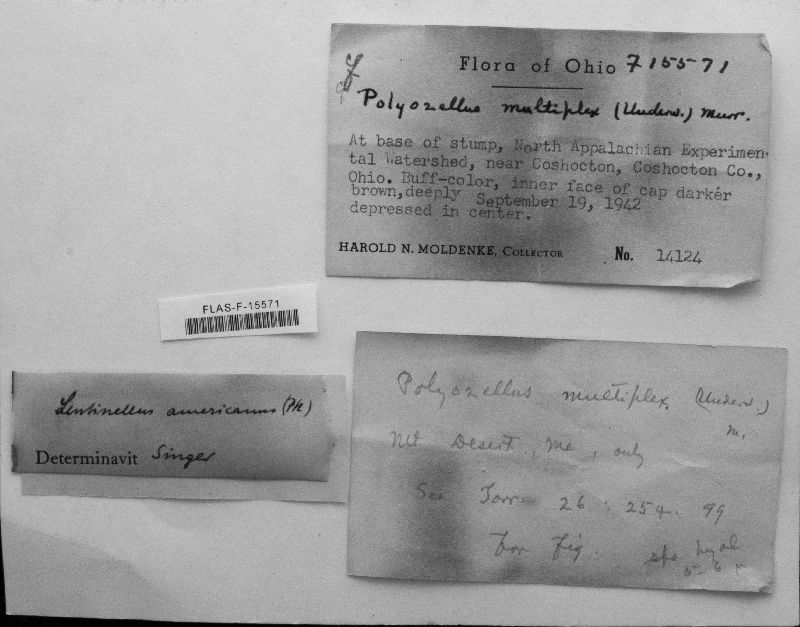 Flora of Ohio F 15571
Polyozellus multiplex (Underw.) Murr.
At base of stump, North Appalachian Experimen-
tal Watershed, near Coshocton, Coshocton Co.,
Ohio. Buff-color, inner face of cap darker
brown, deeply September 19, 1942
depressed in center.
HAROLD N. MOLDENKE, COLLECTOR No. 14124
FLAS-F-15571
Lentinellus americanus (Pk)
Determinavit Singer
Polyozellus multiplex (Underw.)
m.
Mt Desert, Me, only
See Torr. 26: 254. 99
For Fig. spo hyal
5-6 µ